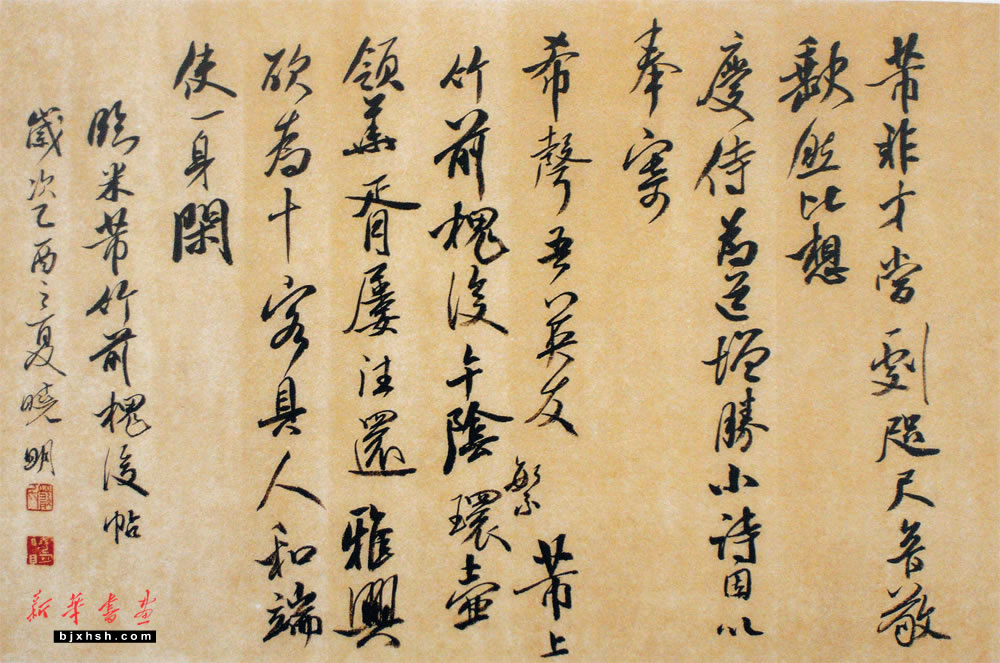 芾非才當劇咫尺音敬
歉然比想
慶侍為道增勝小詩因以
奉寄
希聲吾英友 芾上
竹前槐後午陰繁
環壺
領華胥屡往還雅興
欲為十客具人和端
使一身閑
臨米芾竹前槐後帖
歲次乙酉之夏曉明
新華書畫
bjxhsh.com